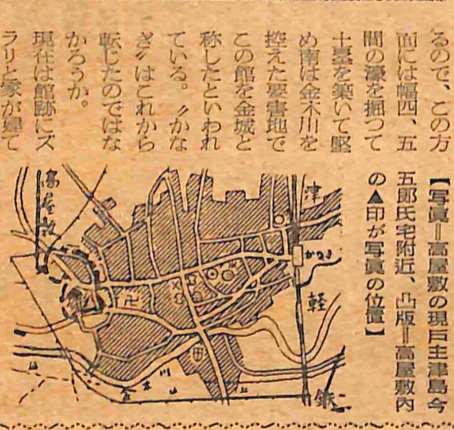 るので、この方
面には幅四、五
間の濠を掘つて
土塁を築いて堅
め南は金木川を
控えた要害地で
この館を金城と
称したといわれ
ている。〃かな
ぎ〃はこれから
転じたのではな
かろうか。
現在は館跡にズ
ラリと家が建て
【写真＝高屋敷の現戸主津島今
五郎氏宅附近、凸版＝高屋敷内
の▲印が写真の位置】
高屋敷
津
かなぎ
軽
鉄
金木川